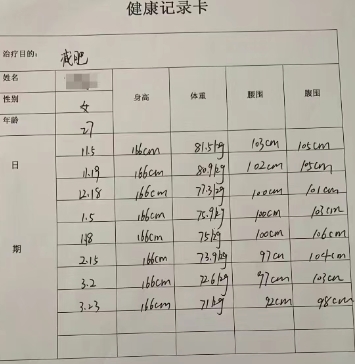 健康记录卡
治疗目的: 减肥
姓名
性别 女 身高 体重 腰围 腹围
年龄 27
日期
11.5 166cm 81.5kg 103cm 105cm
11.19 166cm 80.9kg 102cm 105cm
12.18 166cm 77.3kg 100cm 101cm
1.5 166cm 75.9kg 100cm 103cm
166cm 75kg 100cm 106cm
2.15 166cm 73.9kg 97cm 104cm
3.2 166cm 72.6kg 97cm 103cm
3.23 166cm 71kg 92cm 98cm